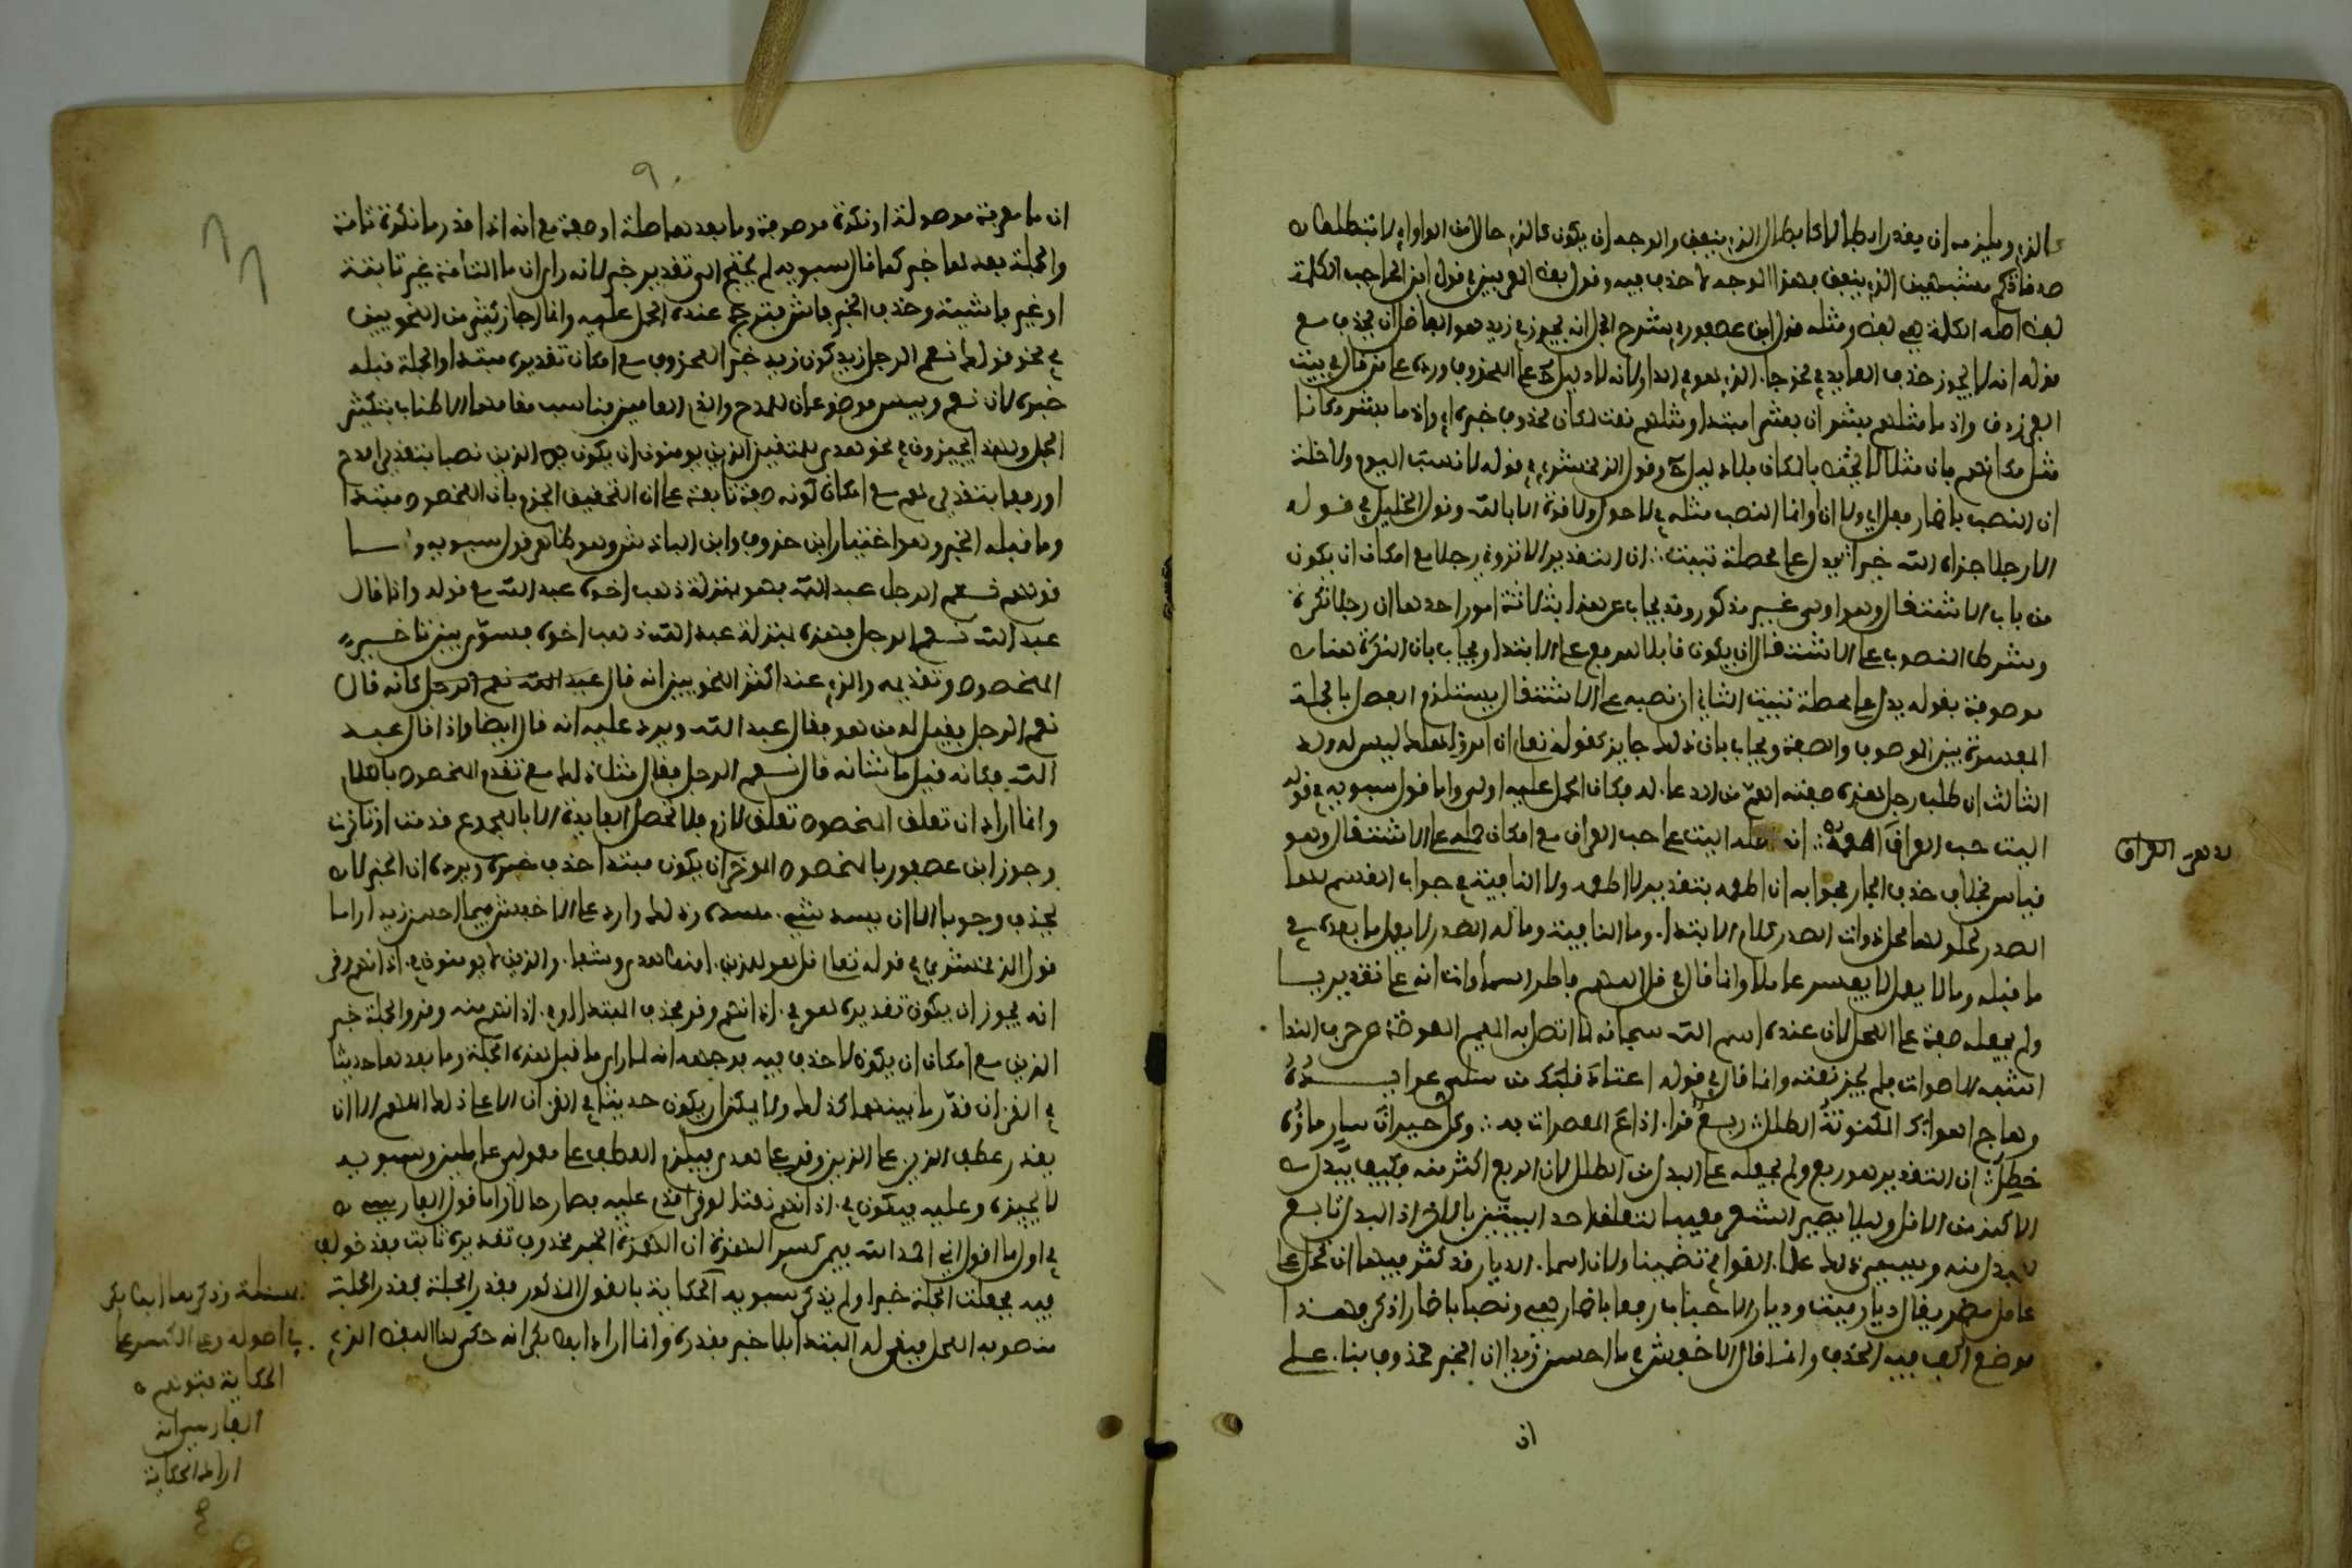 كالذي ويلزمه ان يقدر رابطا لا كابطال الذي ينفق والوجه ان يكون كالذي حالا من الواو اي لا تبطلوا
صدقاتكم مشبهين الذي ينفق بهذا الوجه لا حذف فيه وقول بعض العربيين في قول ابن الحاجب الكلمة
لفظ اصله الكلمة هي لفظ ومثله قول ابن عصفور في شرح الجمل انه يجوز في زيد هو الفاضل ان يحذف مع
قوله انه لا يجوز حذف العايد في نحو جاء الذي هو في الدار لانه لا دليل ح على المحذوف ورده على من قال في بيت
الفرزدق واذ ما مثلهم بشر ان بشر مبتدا ومثلهم نعت لمكان محذوف خبره اي واذ ما بشر مكانا
مثل مكانهم بان مثلا لا يختص بالمكان فلا دليل ح وقول الزمخشري في قوله لا نسب اليوم ولا خلة
ان النصب باضمار فعل اي ولا ارى وانما النصب مثله في لا حول ولا قوة الا بالله وقول الخليل في قوله
الا رجلا جزاه الله خيرا يدل على محصلة تبيت ان التقدير الا تروني رجلا مع امكان ان يكون
من باب الاشتغال وهو اولى من تقدير فعل غير مذكور وقد يجاب عن هذا بثلاثة امور احدها ان رجلا نكرة
وشرط المنصوب على الاشتغال ان يكون قابلا للرفع على الابتداء ويجاب بان النكرة هنا
موصوفة بقوله يدل على محصلة تبيت الثاني ان نصبه على الاشتغال يستلزم الفصل بالجملة
المفسرة بين الموصوف والصفة ويجاب بان ذلك جايز كقوله تعالى ان امرؤ هلك ليس له ولد
الثالث ان طلب رجل هذه صفته اهم من الدعاء له فكان الحمل عليه اولى واما قول سيبويه في قوله
اليت حب العراق الدهر اطعمه ان اصله اليت على حب العراق مع امكان حمله على الاشتغال وهو
قياس بخلاف حذف الجار فجوابه ان اطعمه بتقدير لا اطعمه ولا النافية في جواب القسم لها
الصدر لحلولها محل ذوات الصدر كلام الابتداء وما النافية وما له الصدر لا يعمل ما بعده في
ما قبله وما لا يعمل لا يفسر عاملا وانما قال في قل اللهم فاطر السماوات انه على تقدير يا
ولم يجعله صفة على المحل لان عنده اسم الله سبحانه لما اتصل به الميم المعوضة عن حرف النداء
اشبه الاصوات فلم يجز نعته وانما قال في قوله اعتاد قلبك من سلمى عوايده
وهاج اهواءك المكنونة الطلل ربع قواء اذاع المعصرات به وكل حيران سار ماؤه
خضل ان التقدير هو ربع ولم يجعله على البدل من الطلل لان الربع اكثر منه فكيف يبدل
الاكثر من الاقل وليلا يصير الشعر معيبا لتعلق احد البيتين بالاخر اذ البدل تابع
للمبدل منه ويسمى ذلك علماء القوافي تضمينا ولان اسماء الديار قد كثر فيها ان تحمل على
عامل مضمر يقال ديار مية وديار الاحباب رفعا باضمار هي ونصبا باضمار اذكر فهذا
موضع الف فيه الحذف وانما قال الاخفش في ما احسن زيدا ان الخبر محذوف بناء على
ان
العراق
٩٠
ان ما معرفة موصولة او نكرة موصوفة وما بعدها صلة او صفة مع انه اذا قدر ما نكرة تامة
والجملة بعدها خبر كما قال سيبويه لم يحتج الى تقدير خبر لانه راى ان ما التامة غير ثابتة
او غير فاشية وحذف الخبر فاش فترجح عنده الحمل عليه وانما اجاز كثير من النحويين
في نحو قولك نعم الرجل زيد كون زيد خبر المحذوف مع امكان تقديره مبتدا والجملة قبله
خبره لان نعم وبيس موضوعان للمدح والذم العامين فناسب مقامهما الاطناب بتكثير
الجمل ولهذا يجيزون في نحو هدى للمتقين الذين يومنون ان يكون الذين نصبا بتقدير امدح
او رفعا بتقدير هم مع امكان كونه صفة تابعة على ان التحقيق الجزم بان المخصوص مبتدا
وما قبله الخبر وهو اختيار ابن خروف وابن الباذش وهو ظاهر قول سيبويه واما
قولهم نعم الرجل عبد الله فهو بمنزلة ذهب اخوه عبد الله مع قوله وانما قال
عبد الله نعم الرجل فهذه بمنزلة عبد الله ذهب اخوه فسوى بين تاخير
المخصوص وتقديمه والذي عند اكثر النحويين انه قال عبد الله نعم الرجل كانه قال
نعم الرجل فقيل له من هو فقال عبد الله ويرد عليه انه قال ايضا واذا قال عبد
الله فكانه قيل ما شانه قال نعم الرجل فقال مثل ذلك مع تقدم المخصوص بالكلام
وانما اراد ان تعلق المخصوص تعلق لازم فلا تحصل الفايدة الا بالمجموع قدمت او اخرت
وجوز ابن عصفور بالمخصوص الموخر ان يكون مبتدا حذف خبره ويرده ان الخبر لا
يحذف وجوبا الا ان يسد شيء مسده وذلك وارد على الاخفش في ما احسن زيدا واما
قول الزمخشري في قوله تعالى قل هو للذين امنوا هدى وشفاء والذين لا يومنون في اذانهم وقر
انه يجوز ان يكون تقديره هو في اذانهم وقر فحذف المبتدا او في اذانهم منه وقر والجملة خبر
الذين مع امكان ان يكون لا حذف فيه فوجهه انه لما راى ما قبل هذه الجملة وما بعدها حديثا
في القران قدر ما بينهما كذلك ولا يمكن ان يكون حديثا في القران الا على ذلك اللهم الا ان
يقدر عطف الذين على الذين وقر على هدى فيلزم العطف على معمولي عاملين وسيبويه
لا يجيزه وعليه فيكون في اذانهم نعتا لوقر قدم عليه فصار حالا واما قول الفارسي
في اول ما اقول اني احمد الله فيمن كسر الهمزة ان الهمزة الخبر محذوف تقديره ثابت فقد خولف
فيه فجعلت الجملة خبرا ولم يذكر سيبويه الحكاية بالقول المذكور فقدر الجملة فقدر الجملة
منصوبة المحل فبقي له المبتدا بلا خبر فقدره وانما اراد ابو بكر انه حكى لنا اللفظ الذي
المسئلة وذكرها ابو بكر
في اصوله وعلى الكسر على
الحكاية فتوهم
الفارسي انه
اراد الحكاية